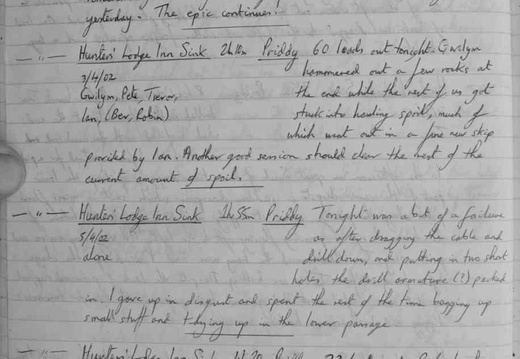 yesterday. The epic continues!
— " — Hunters' Lodge Inn Sink 2h10m Priddy 60 loads out tonight. Gwilym
3/4/02 hammered out a few rocks at
Gwilym, Pete, Trevor, the end while the rest of us got
Ian, (Bev, Robin) stuck into hauling spoil, much of
which went out in a fine new skip
provided by Ian. Another good session should clear the rest of the
current amount of spoil.
— " — Hunters' Lodge Inn Sink 1h55m Priddy Tonight was a bit of a failure
5/4/02 as after dragging the cable and
alone drill down, and putting in two short
holes the drill armature (?) packed
in. I gave up in disgust and spent the rest of the time bagging up
small stuff and tidying up in the lower passage.
— " — Hunters' Lodge Inn Sink